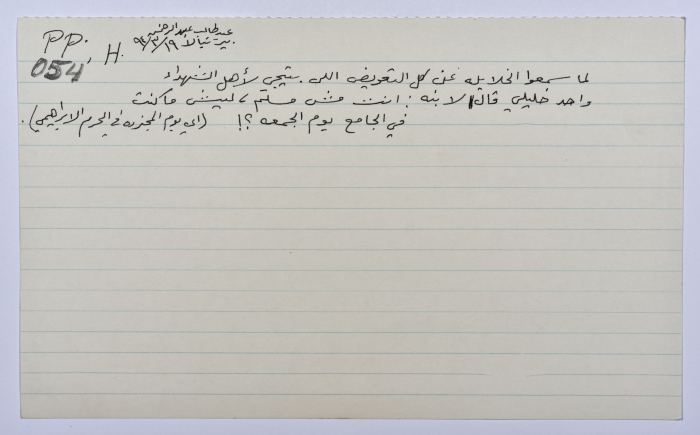 PP. H.
054
عبد طالب عبد الرحمن
بيت نبالا ١٩/٣/٩٤
لما سمعوا الخلايله عن كل التعويض اللي بتيجي لأهل الشهداء
واحد خليلي قال لابنه : انت مش مسلم ، ليش ما كنت
في الجامع يوم الجمعه ؟! (اي يوم المجزره في الحرم الابراهيمي).